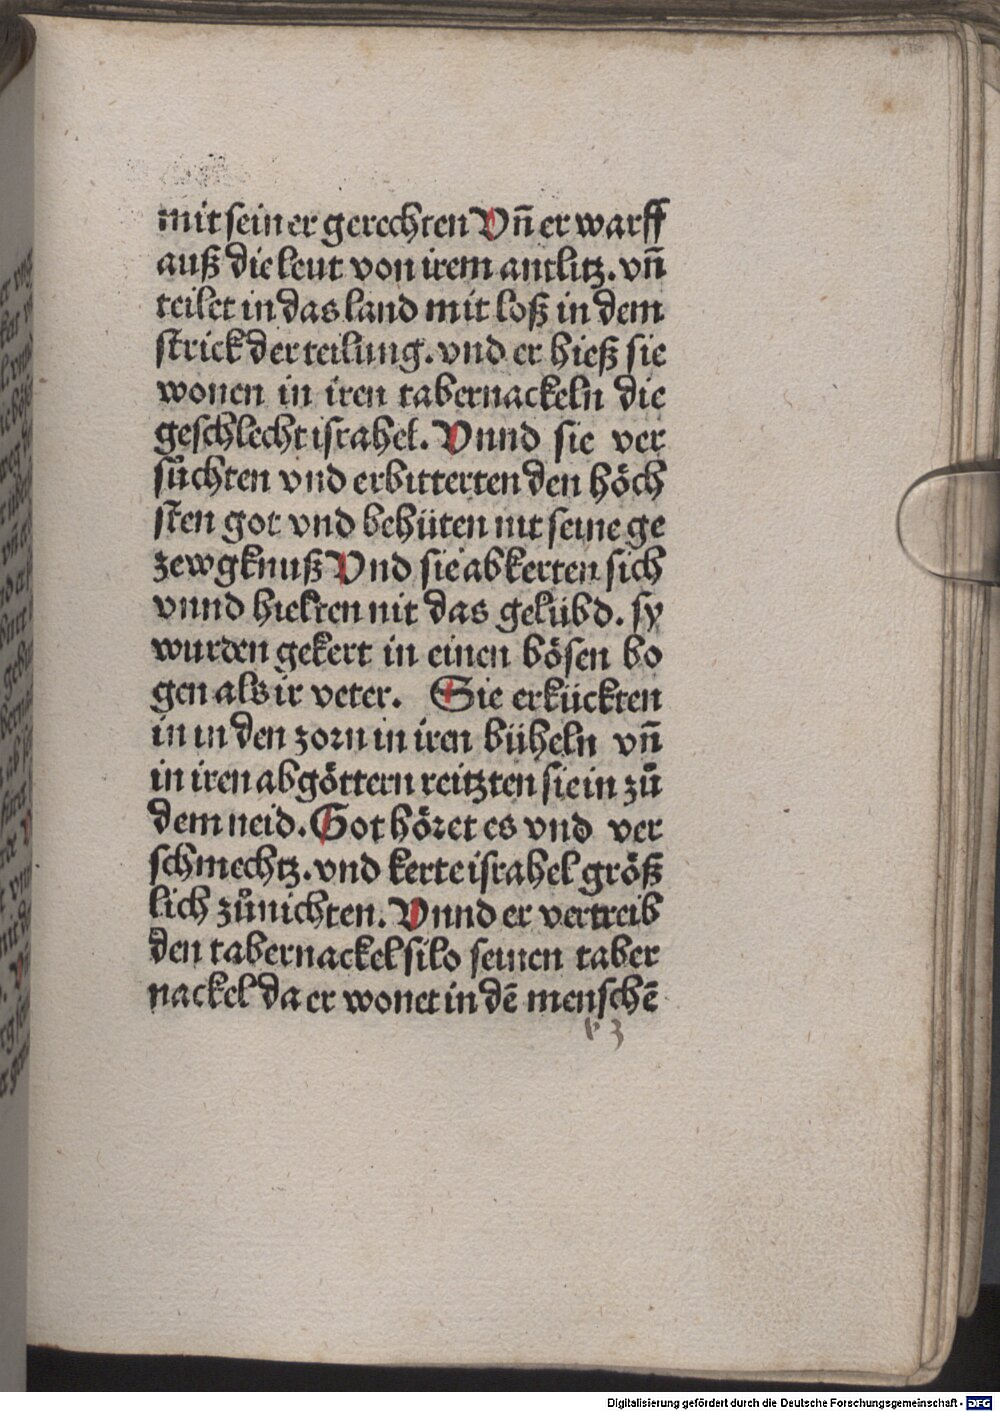 mit seiner gerechten Vn̄ er warff
auß die leut von irem antlitz. vn̄
teilet in das land mit loß in dem
strick der teilung. vnd er hieß sie
wonen in iren tabernackeln die
geschlecht israhel. Vnnd sie ver
sůchten vnd erbitterten den höch
sten got vnd behüten nit seine ge
zewgknuß Vnd sie abkerten sich
vnnd hielten nit das gelübd. sy
wurden gekert in einen bösen bo
gen als ir veter. Sie erkückten
in in den zorn in iren büheln vn̄
in iren abgöttern reitzten sie in zů
dem neid. Got höret es vnd ver
schmechtz. vnd kerte israhel größ
lich zůnichten. Vnnd er vertreib
den tabernackel silo seinen taber
nackel da er wonet in dē menschē
Digitalisierung gefördert durch die Deutsche Forschungsgemeinschaft - DFG